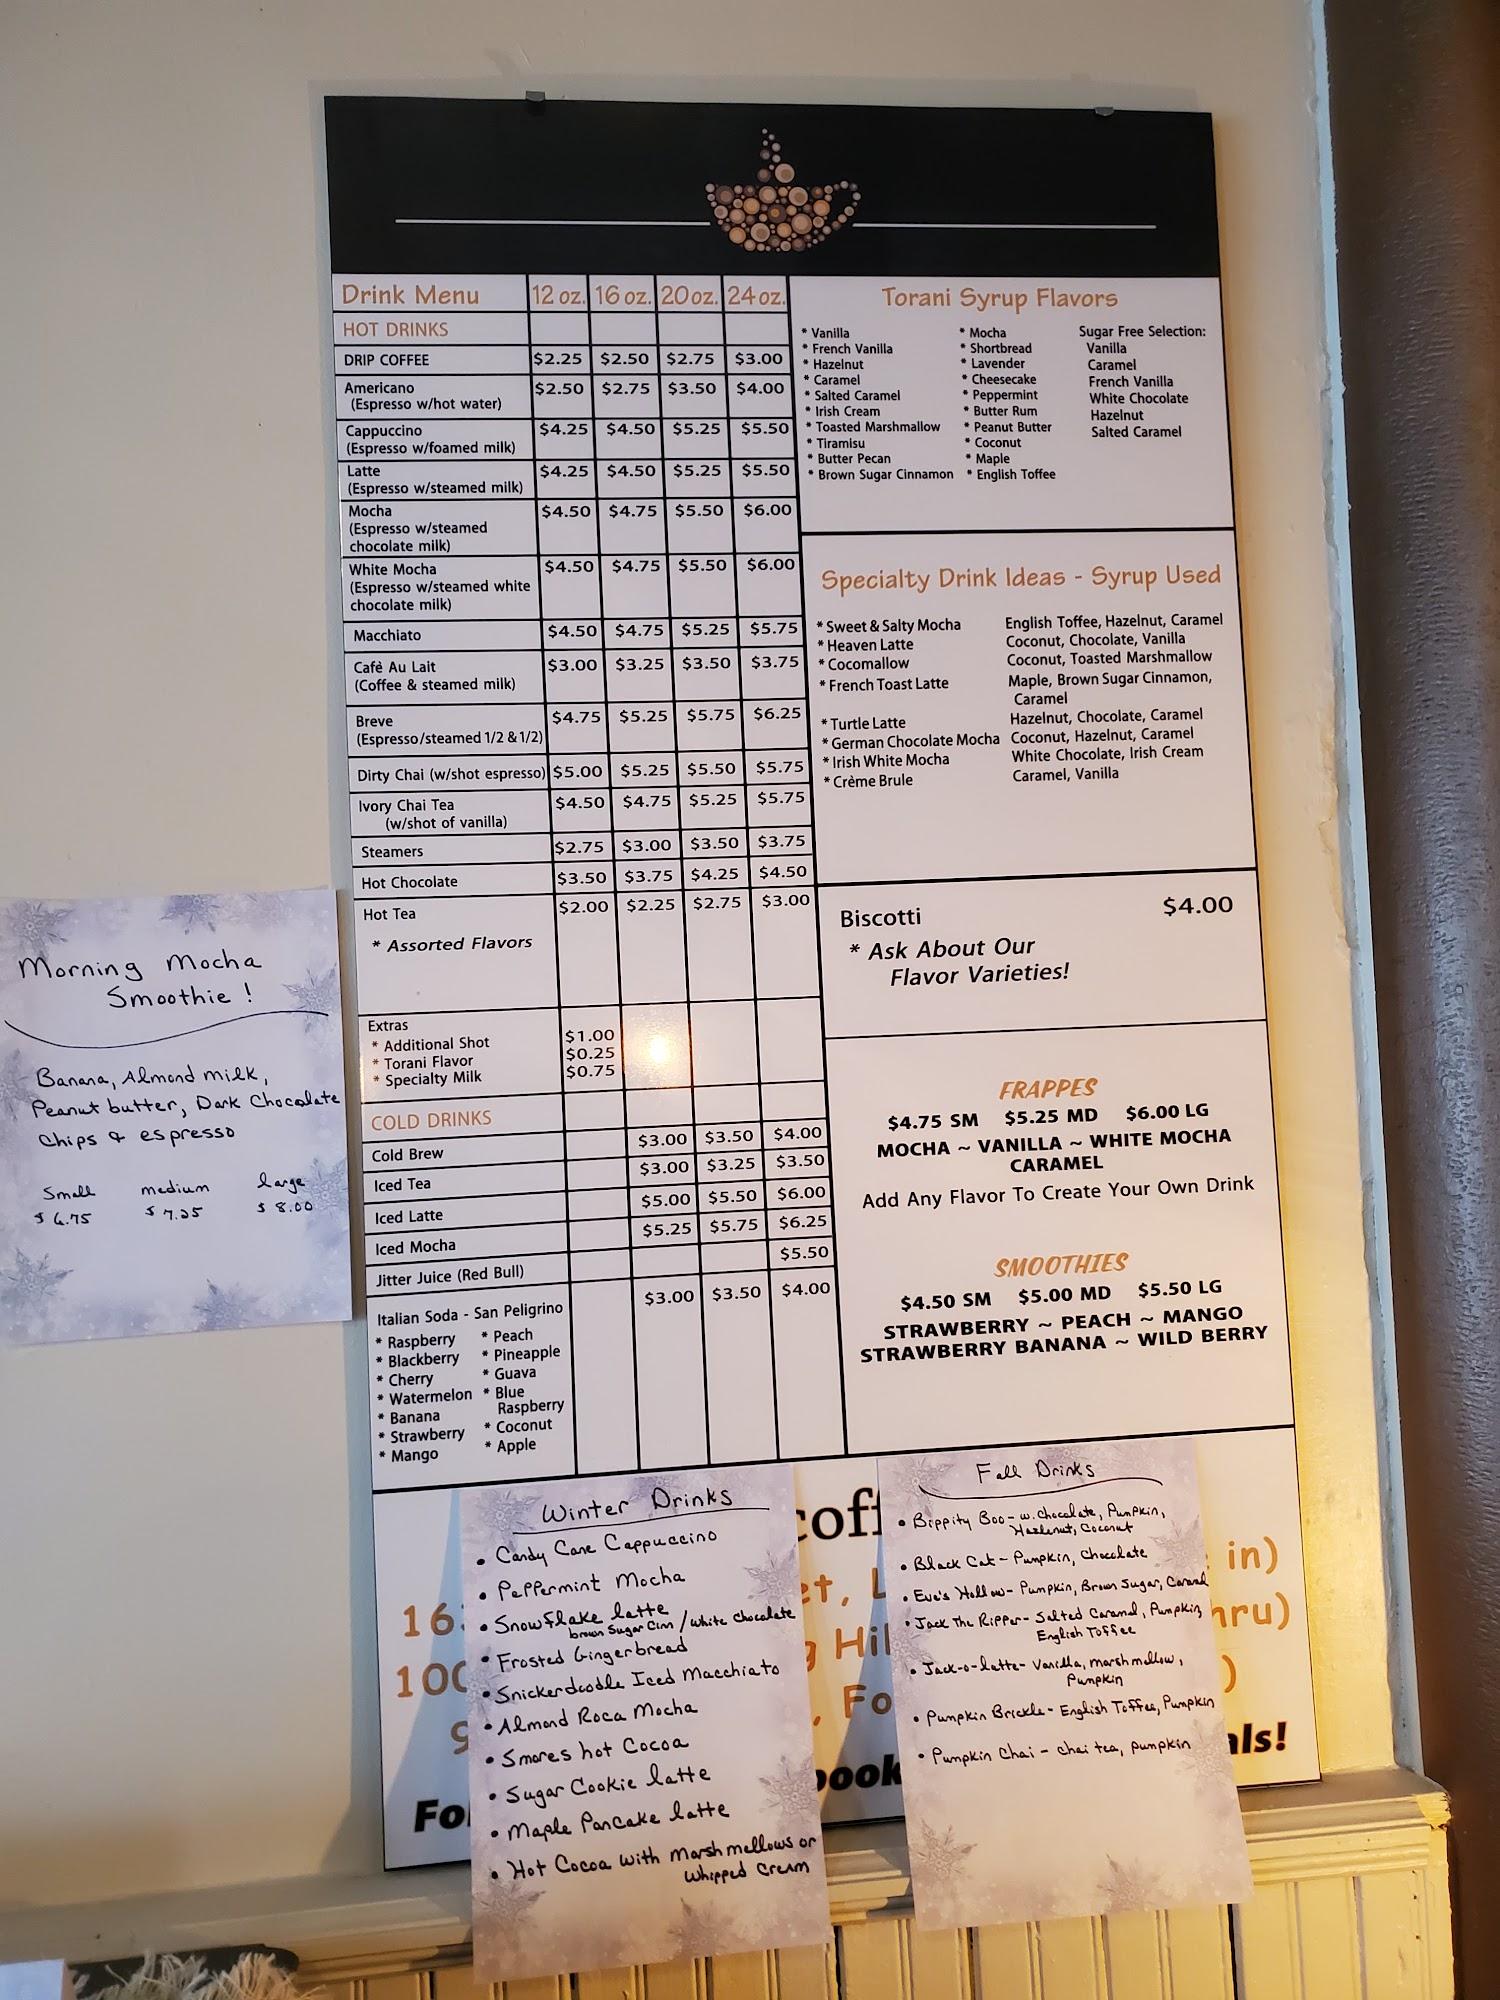 Drink Menu 12 oz. 16 oz. 20 oz. 24 oz.
HOT DRINKS
DRIP COFFEE $2.25 $2.50 $2.75 $3.00
Americano $2.50 $2.75 $3.50 $4.00
(Espresso w/hot water)
Cappuccino $4.25 $4.50 $5.25 $5.50
(Espresso w/foamed milk)
Latte $4.25 $4.50 $5.25 $5.50
(Espresso w/steamed milk)
Mocha $4.50 $4.75 $5.50 $6.00
(Espresso w/steamed
chocolate milk)
White Mocha $4.50 $4.75 $5.50 $6.00
(Espresso w/steamed white
chocolate milk)
Macchiato $4.50 $4.75 $5.25 $5.75
Cafè Au Lait $3.00 $3.25 $3.50 $3.75
(Coffee & steamed milk)
Breve $4.75 $5.25 $5.75 $6.25
(Espresso/steamed 1/2 & 1/2)
Dirty Chai (w/shot espresso) $5.00 $5.25 $5.50 $5.75
Ivory Chai Tea $4.50 $4.75 $5.25 $5.75
(w/shot of vanilla)
Steamers $2.75 $3.00 $3.50 $3.75
Hot Chocolate $3.50 $3.75 $4.25 $4.50
Hot Tea $2.00 $2.25 $2.75 $3.00
* Assorted Flavors
Extras
* Additional Shot $1.00
* Torani Flavor $0.25
* Specialty Milk $0.75
COLD DRINKS
Cold Brew $3.00 $3.50 $4.00
Iced Tea $3.00 $3.25 $3.50
Iced Latte $5.00 $5.50 $6.00
Iced Mocha $5.25 $5.75 $6.25
Jitter Juice (Red Bull) $5.50
Italian Soda - San Peligrino $3.00 $3.50 $4.00
* Raspberry * Peach
* Blackberry * Pineapple
* Cherry * Guava
* Watermelon * Blue
Raspberry
* Banana
* Strawberry * Coconut
* Mango * Apple
Torani Syrup Flavors
* Vanilla * Mocha Sugar Free Selection:
* French Vanilla * Shortbread Vanilla
* Hazelnut * Lavender Caramel
* Caramel * Cheesecake French Vanilla
* Salted Caramel * Peppermint White Chocolate
* Irish Cream * Butter Rum Hazelnut
* Toasted Marshmallow * Peanut Butter Salted Caramel
* Tiramisu * Coconut
* Butter Pecan * Maple
* Brown Sugar Cinnamon * English Toffee
Specialty Drink Ideas - Syrup Used
* Sweet & Salty Mocha English Toffee, Hazelnut, Caramel
* Heaven Latte Coconut, Chocolate, Vanilla
* Cocomallow Coconut, Toasted Marshmallow
* French Toast Latte Maple, Brown Sugar Cinnamon,
Caramel
* Turtle Latte Hazelnut, Chocolate, Caramel
* German Chocolate Mocha Coconut, Hazelnut, Caramel
* Irish White Mocha White Chocolate, Irish Cream
* Crème Brule Caramel, Vanilla
Biscotti $4.00
* Ask About Our
Flavor Varieties!
FRAPPES
$4.75 SM $5.25 MD $6.00 LG
MOCHA ~ VANILLA ~ WHITE MOCHA
CARAMEL
Add Any Flavor To Create Your Own Drink
SMOOTHIES
$4.50 SM $5.00 MD $5.50 LG
STRAWBERRY ~ PEACH ~ MANGO
STRAWBERRY BANANA ~ WILD BERRY
Morning Mocha
Smoothie!
Banana, Almond milk,
Peanut butter, Dark Chocolate
Chips & espresso
Small medium large
$6.75 $7.25 $8.00
Winter Drinks
• Candy Cane Cappuccino
• Peppermint Mocha
• Snowflake latte
brown Sugar Cinn / White Chocolate
• Frosted Gingerbread
• Snickerdoodle Iced Macchiato
• Almond Roca Mocha
• Smores hot Cocoa
• Sugar Cookie latte
• Maple Pancake latte
• Hot Cocoa with Marshmellows or
Whipped Cream
Fall Drinks
• Bippity Boo - w. chocolate, Pumpkin,
Hazlenut, Coconut
• Black Cat - Pumpkin, Chocolate
• Eve's Hollow - Pumpkin, Brown Sugar, Caramel
• Jack The Ripper - Salted Caramel, Pumpkin
English Toffee
• Jack-o-latte - Vanilla, marshmellow,
Pumpkin
• Pumpkin Brickle - English Toffee, Pumpkin
• Pumpkin Chai - chai tea, pumpkin
coff
16 et, L in)
100 g Hil hru)
9 , Fo )
Fo book als!